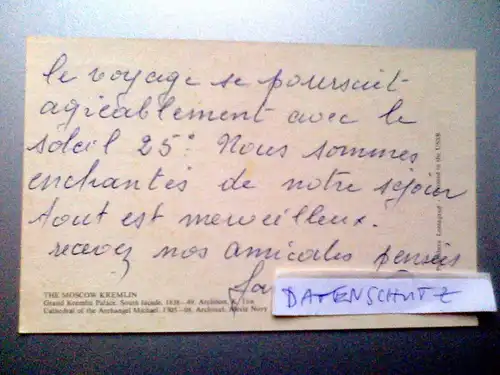 le voyage se poursuit
agréablement avec le
soleil 25° Nous sommes
enchantés de notre séjour
tout est merveilleux.
recevez nos amicales pensées
DATENSCHUTZ
THE MOSCOW KREMLIN
Grand Kremlin Palace. South facade. 1838-49. Architect K. Ton
Cathedral of the Archangel Michael. 1505-08. Architect Alevis Novy
Leningrad
Printed in the USSR